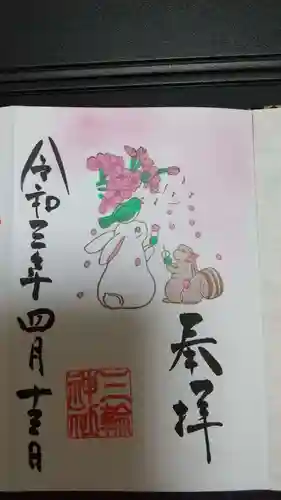 奉拝
三輪神社
令和三年四月十五日